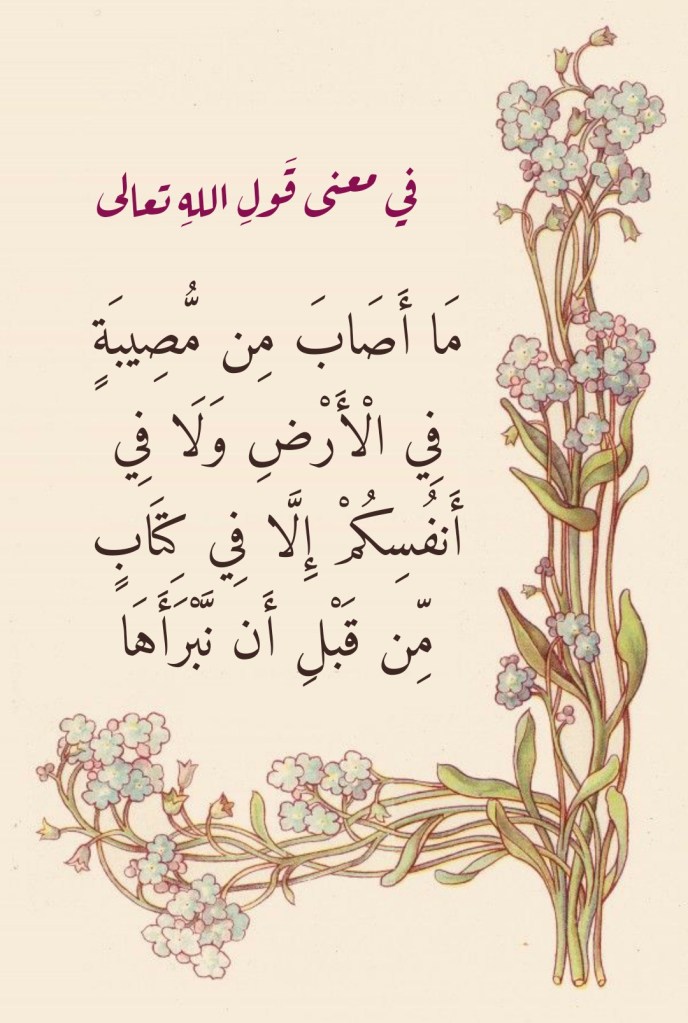 في معنى قَولِ اللهِ تعالى
مَا أَصَابَ مِن مُّصِيبَةٍ
فِي الْأَرْضِ وَلَا فِي
أَنفُسِكُمْ إِلَّا فِي كِتَابٍ
مِّن قَبْلِ أَن نَّبْرَأَهَا